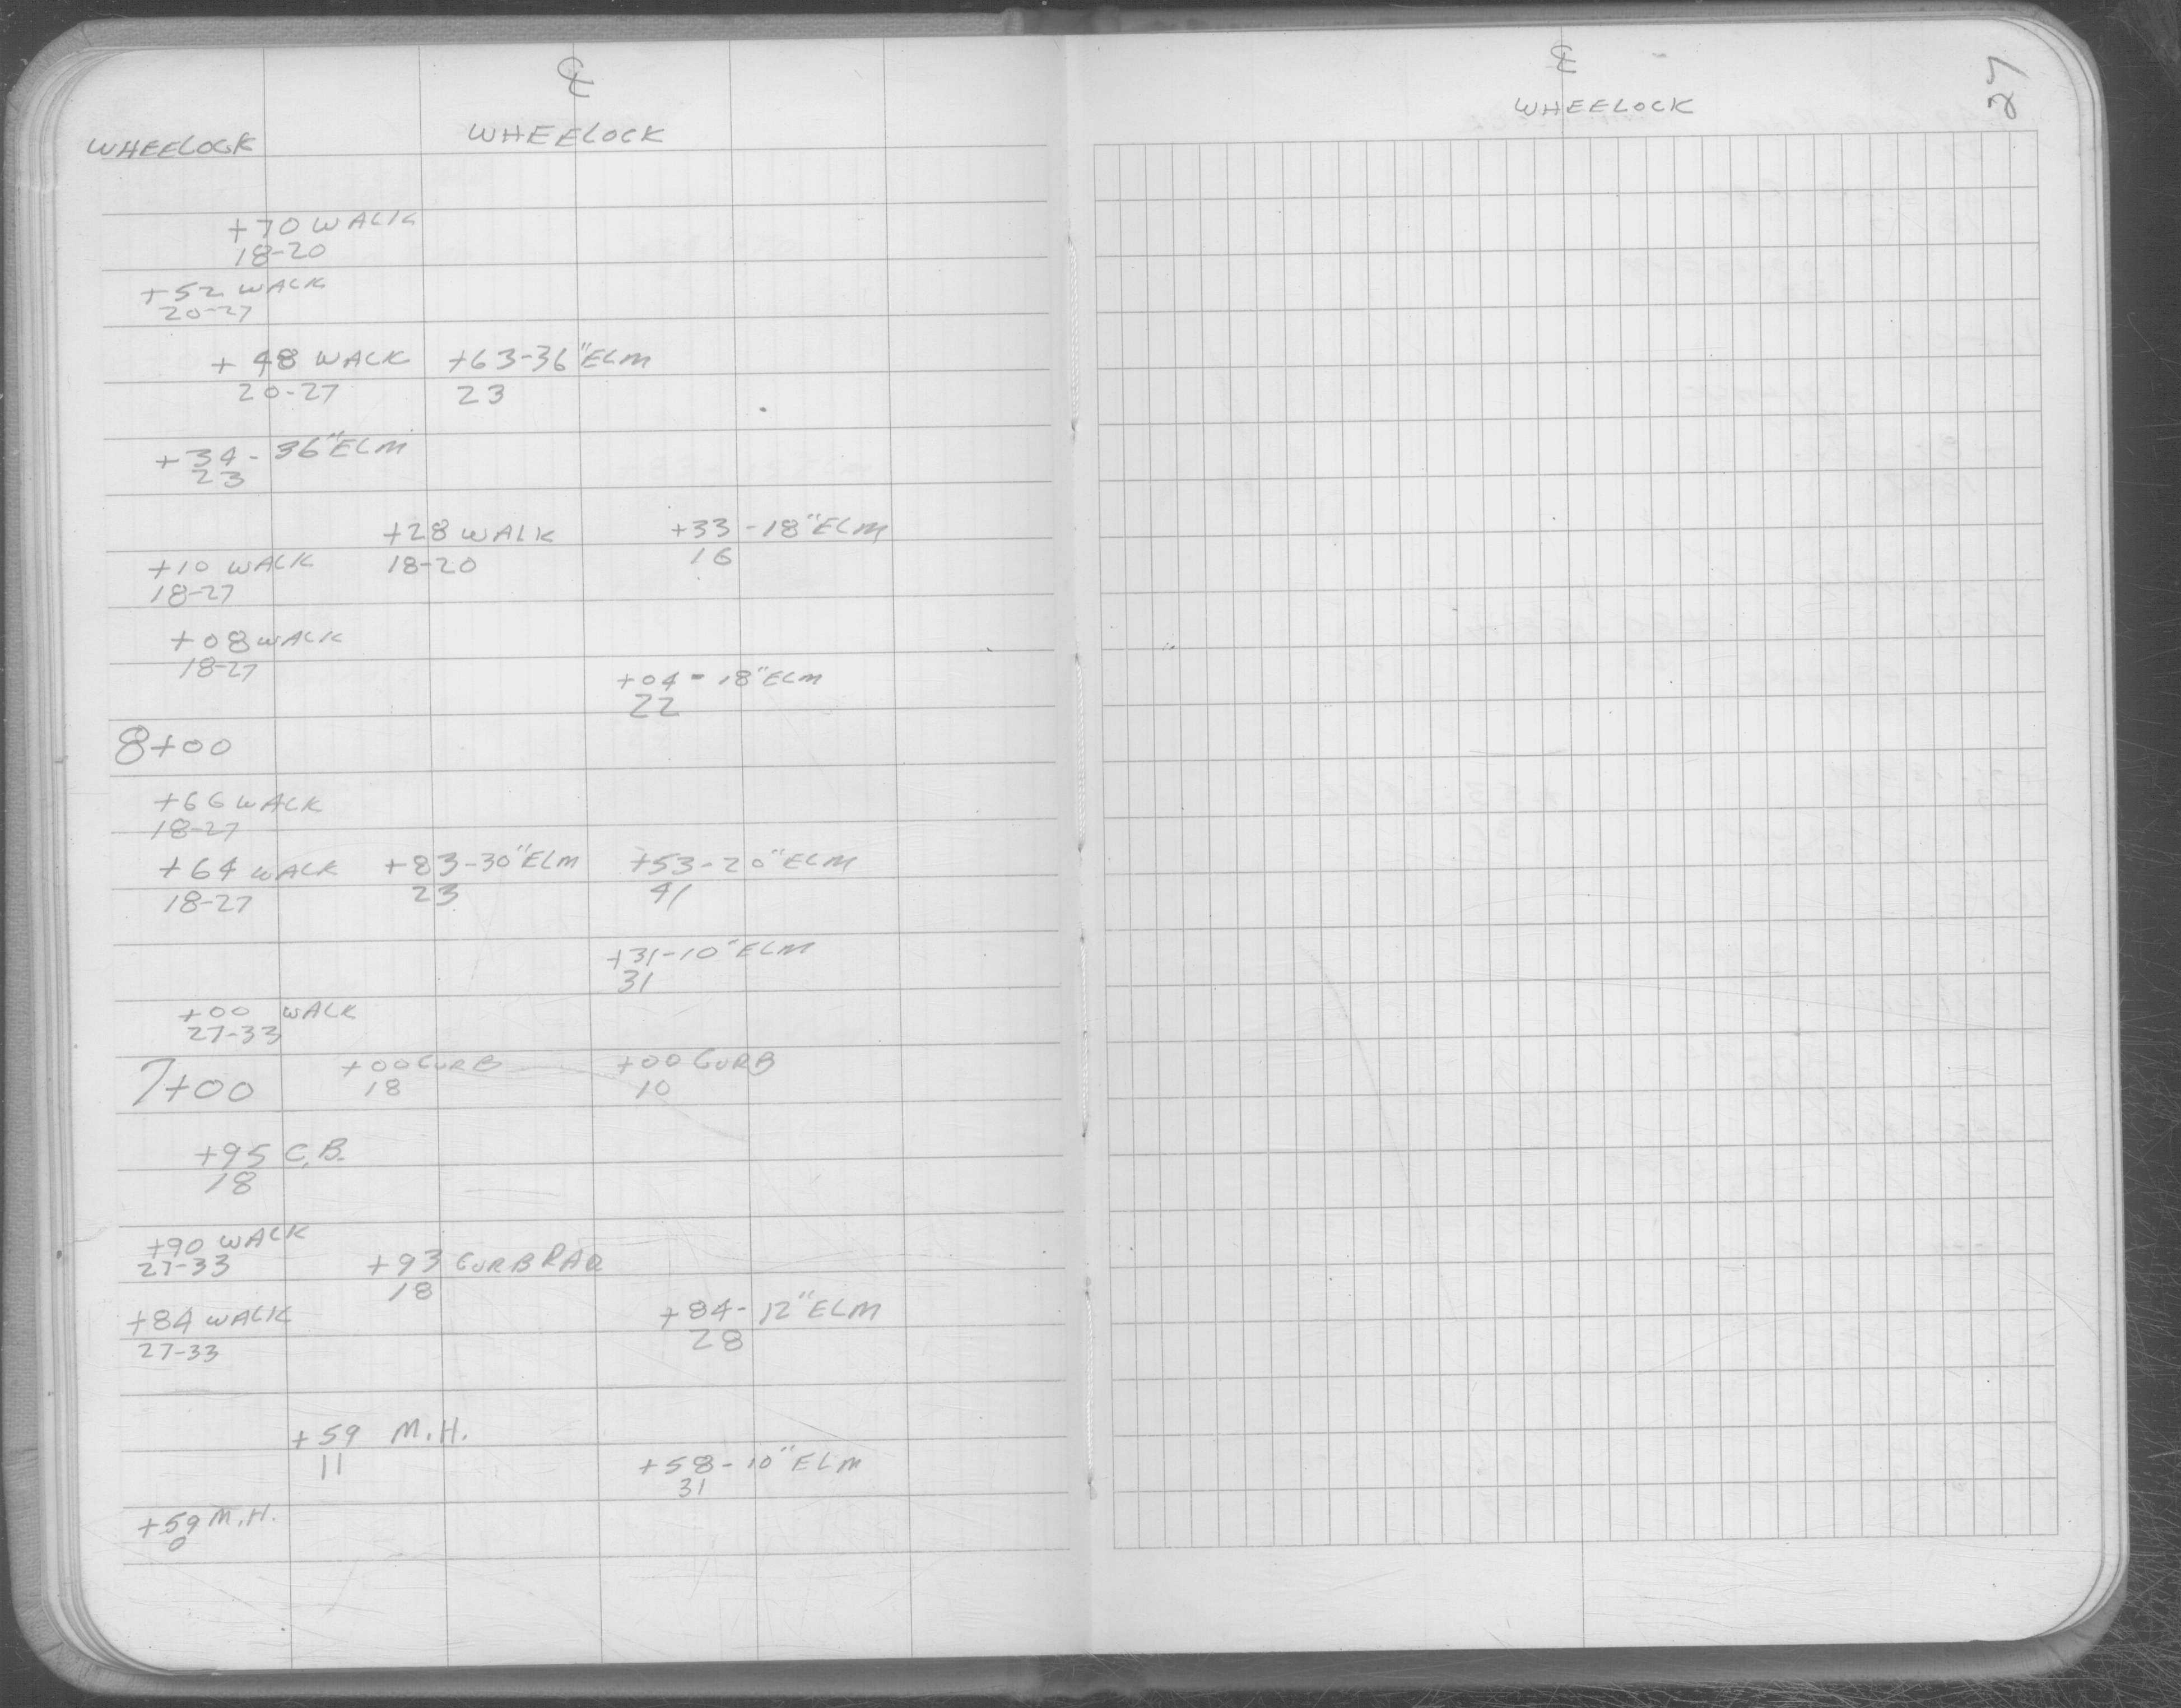 ℄
WHEELOCK WHEELOCK
+70 WALK
18-20
+52 WALK
20-27
+48 WALK +63-36"ELM
20-27 23
+34-36"ELM
23
+28 WALK +33-18"ELM
18-20 16
+10 WALK
18-27
+08 WALK
18-27
+04-18"ELM
22
8+00
+66 WALK
18-27
+64 WALK +83-30"ELM +53-20"ELM
18-27 23 41
+31-10"ELM
31
+00 WALK
27-33
7+00 +00 CURB +00 CURB
18 10
+95 C.B.
18
+90 WALK
27-33
+93 CURB RAD
18
+84 WALK +84-12"ELM
27-33 28
+59 M.H.
11
+58-10"ELM
31
+59 M.H.
0
℄
WHEELOCK
27